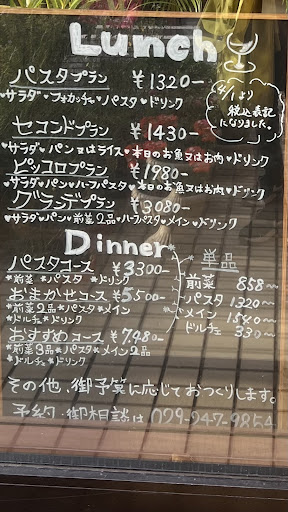 Lunch
4/1より
税込表記
になりました。
パスタプラン ¥1320-
♥サラダ♥フォカッチャ♥パスタ♥ドリンク
セコンドプラン ¥1430-
♥サラダ♥パン又はライス♥本日のお魚又はお肉♥ドリンク
ピッコロプラン ¥1980-
♥サラダ♥パン♥ハーフパスタ♥本日のお魚又はお肉♥ドリンク
グランデプラン ¥3080-
♥サラダ♥パン♥前菜2品♥ハーフパスタ♥メイン♥ドリンク
Dinner
パスタコース ¥3300-
*前菜*パスタ*ドリンク
おまかせコース ¥5,500-
*前菜2品*パスタ*メイン
*ドルチェ*ドリンク
おすすめコース ¥7,480-
*前菜3品*パスタ*メイン2品
*ドルチェ*ドリンク
単品
前菜 858〜
パスタ 1320〜
メイン 1540〜
ドルチェ 330〜
その他、御予算に応じておつくりします。
予約・御相談は 029-247-9854